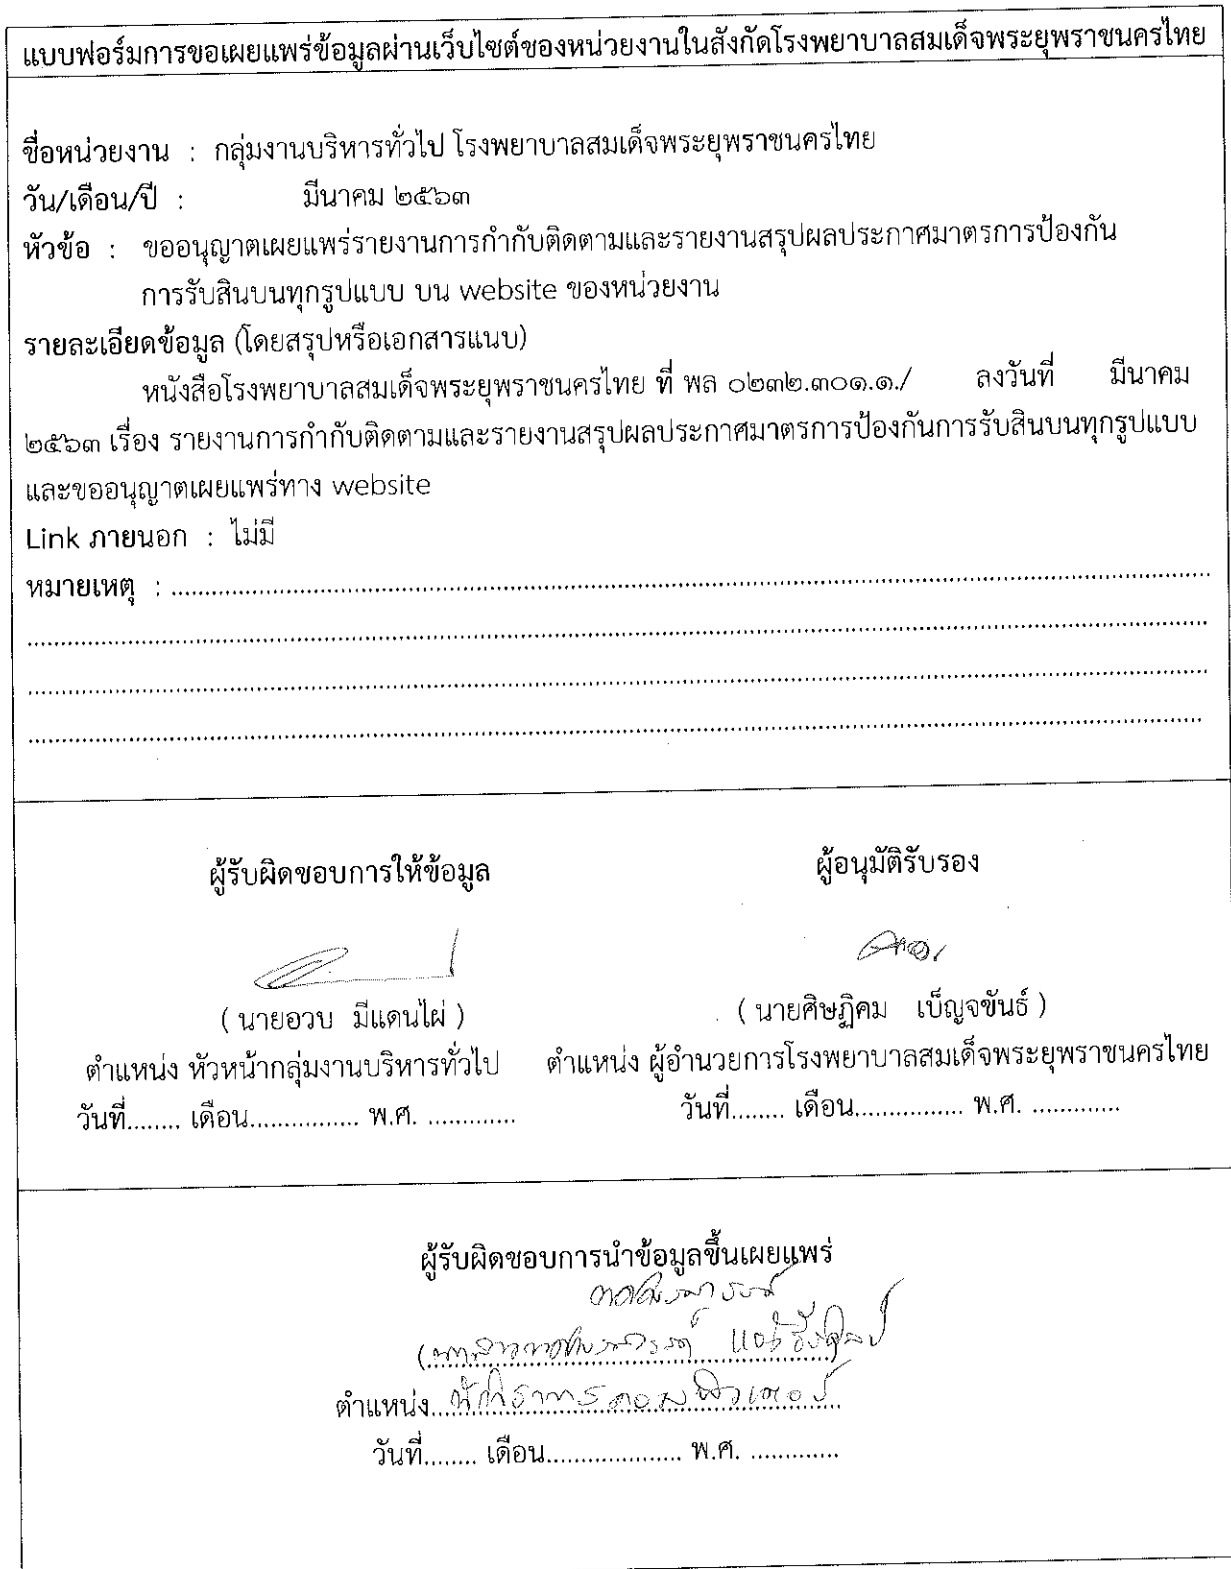 แบบฟอร์มการขอเผยแพร่ข้อมูลผ่านเว็บไซต์ของหน่วยงานในสังกัดโรงพยาบาลสมเด็จพระยุพราชนครไทย
ชื่อหน่วยงาน : กลุ่มงานบริหารทั่วไป โรงพยาบาลสมเด็จพระยุพราชนครไทย
วัน/เดือน/ปี : มีนาคม ๒๕๖๓
หัวข้อ : ขออนุญาตเผยแพร่รายงานการกำกับติดตามและรายงานสรุปผลประกาศมาตรการป้องกัน
การรับสินบนทุกรูปแบบ บน website ของหน่วยงาน
รายละเอียดข้อมูล (โดยสรุปหรือเอกสารแนบ)
หนังสือโรงพยาบาลสมเด็จพระยุพราชนครไทย ที่ พล ๐๒๓๒.๓๐๑.๑./ ลงวันที่ มีนาคม
๒๕๖๓ เรื่อง รายงานการกำกับติดตามและรายงานสรุปผลประกาศมาตรการป้องกันการรับสินบนทุกรูปแบบ
และขออนุญาตเผยแพร่ทาง website
Link ภายนอก : ไม่มี
หมายเหตุ : ........................................
ผู้รับผิดชอบการให้ข้อมูล ผู้อนุมัติรับรอง
( นายอวบ มีแดนไผ่ ) ( นายศิษฏิคม เบ็ญจขันธ์ )
ตำแหน่ง หัวหน้ากลุ่มงานบริหารทั่วไป ตำแหน่ง ผู้อำนวยการโรงพยาบาลสมเด็จพระยุพราชนครไทย
วันที่........ เดือน................ พ.ศ. ............. วันที่........ เดือน................ พ.ศ. .............
ผู้รับผิดชอบการนำข้อมูลขึ้นเผยแพร่
ตำแหน่ง นักวิชาการคอมพิวเตอร์
วันที่........ เดือน.................... พ.ศ. .............